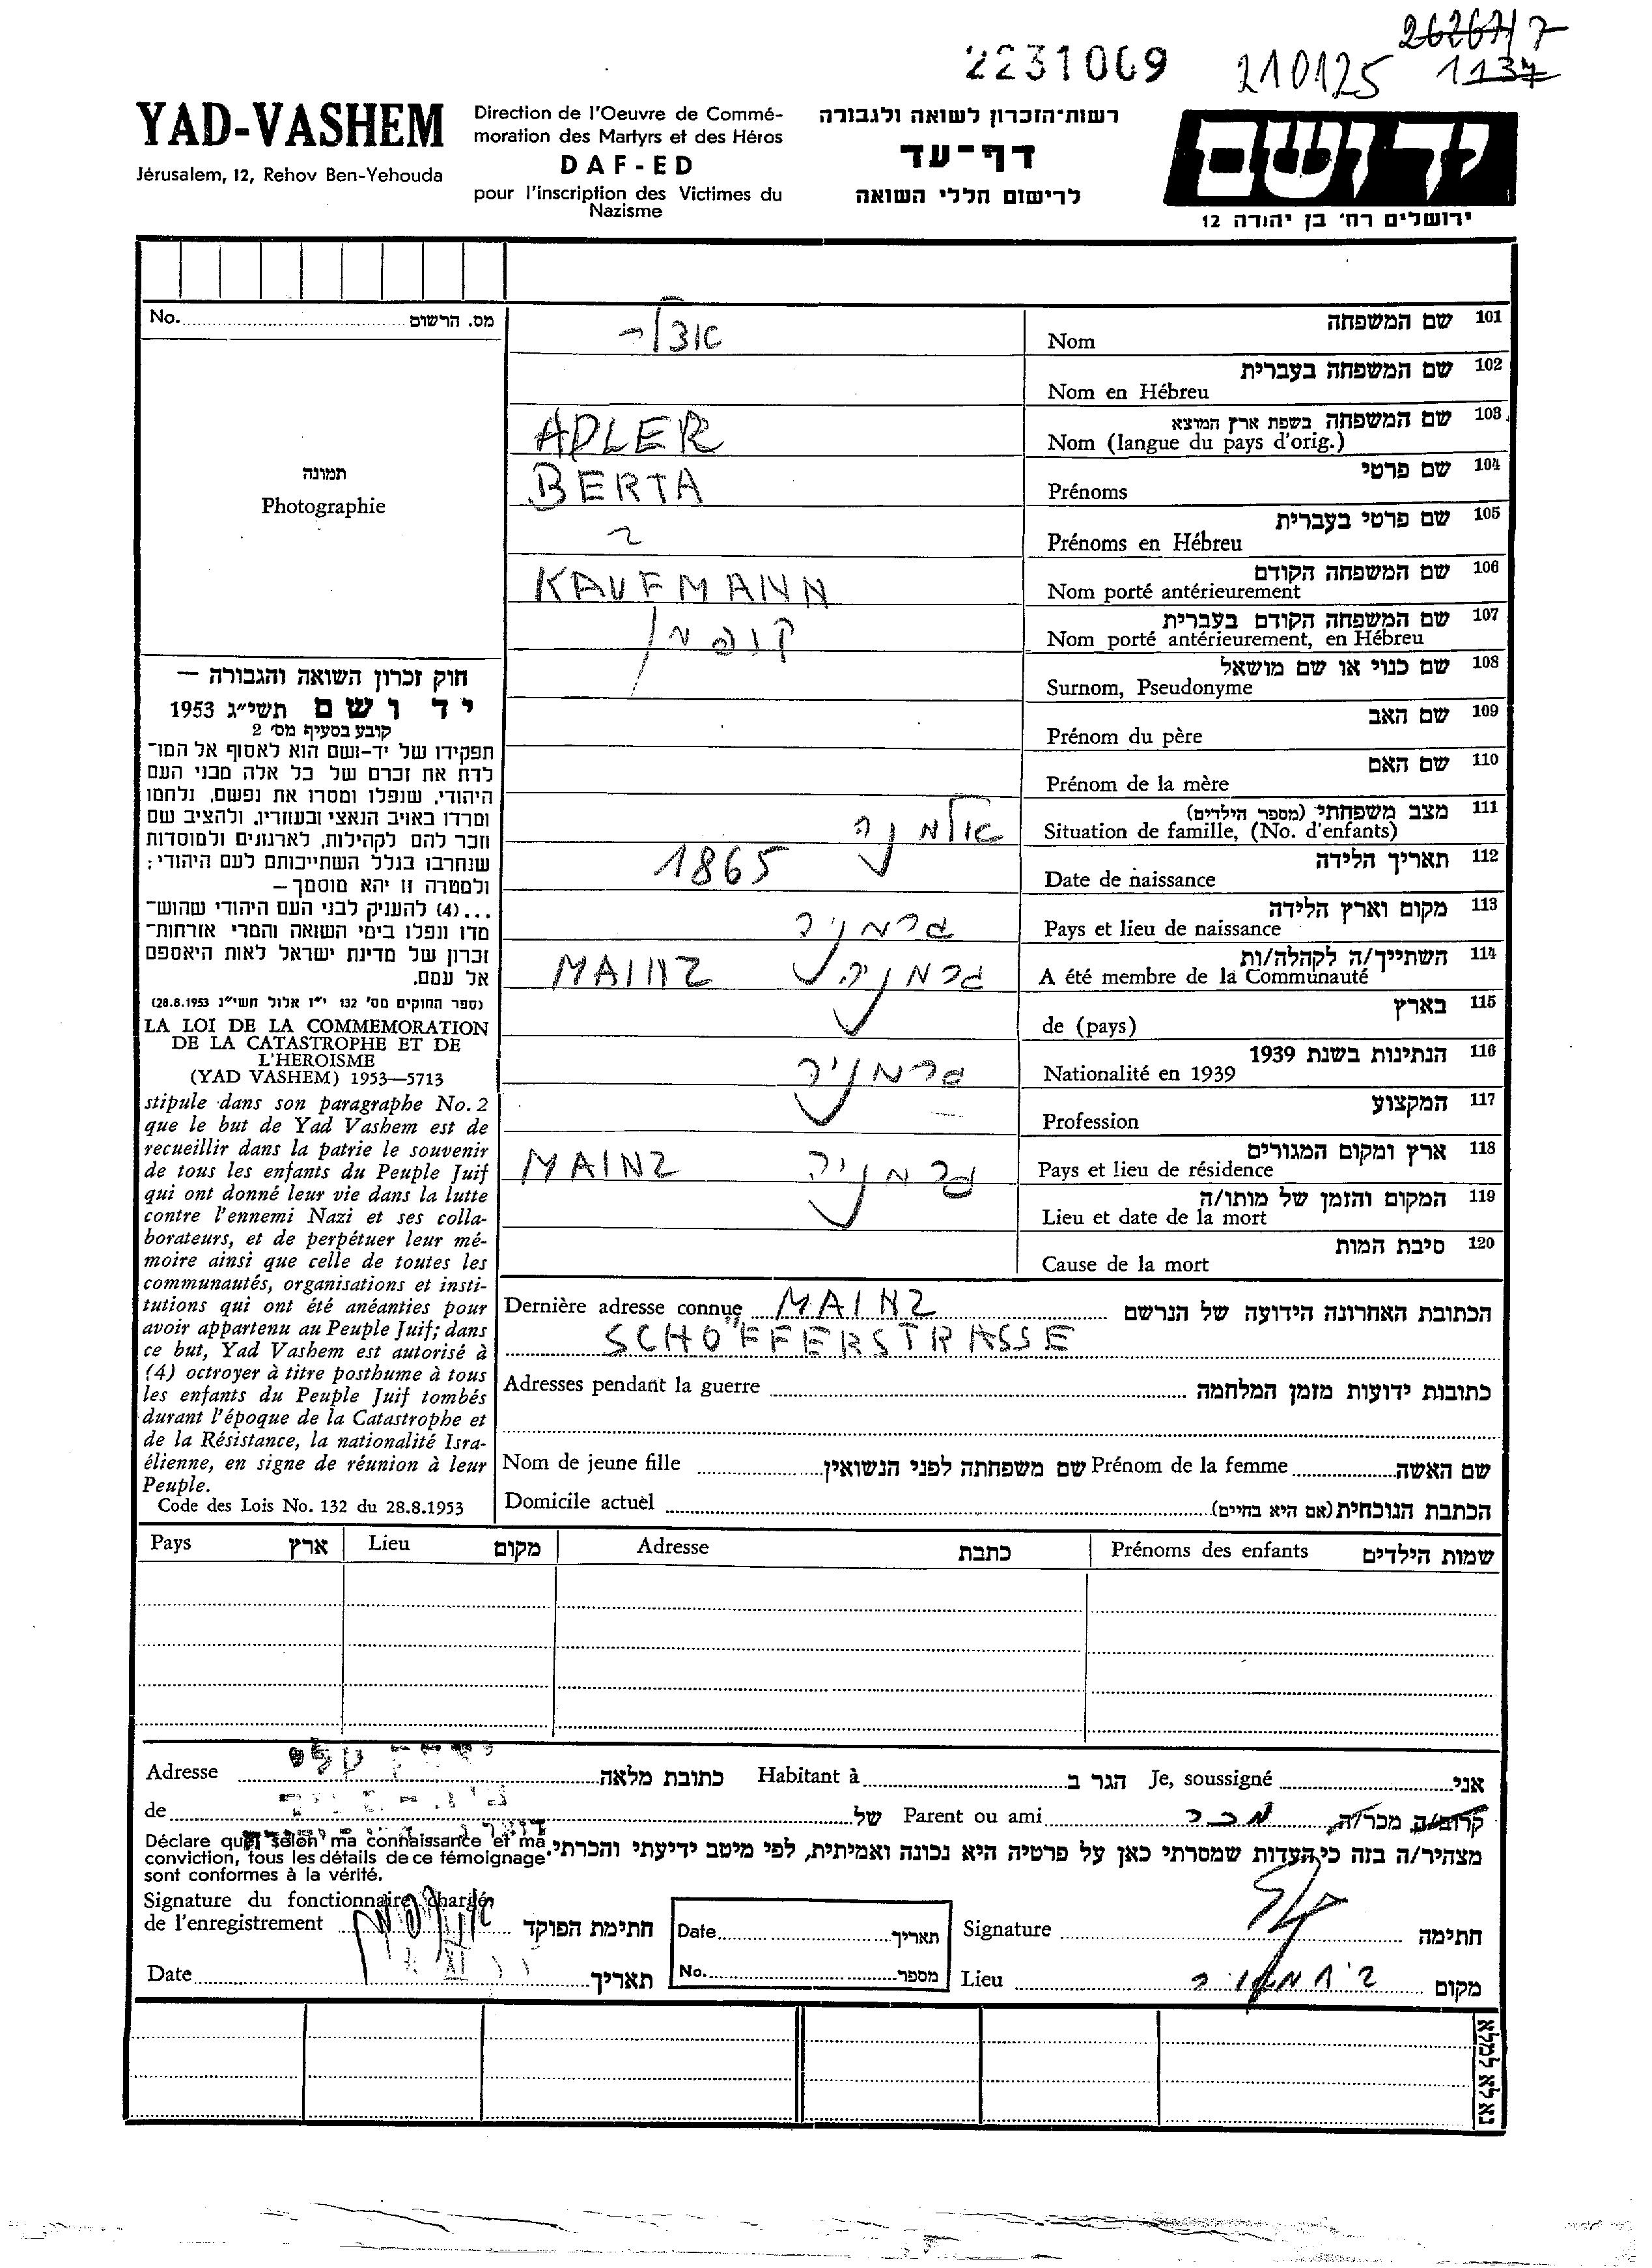 2231069
210125
1137
YAD-VASHEM
Jérusalem, 12, Rehov Ben-Yehouda
Direction de l'Oeuvre de Commé-
moration des Martyrs et des Héros
DAF-ED
pour l'inscription des Victimes du
Nazisme
רשות־הזכרון לשואה ולגבורה
דף־עד
לרישום חללי השואה
יד ושם
ירושלים רח' בן יהודה 12
No. מס. הרשום
תמונה
Photographie
101 שם המשפחה
Nom
אדלר
102 שם המשפחה בעברית
Nom en Hébreu
103 שם המשפחה בשפת ארץ המוצא
Nom (langue du pays d'orig.)
ADLER
104 שם פרטי
Prénoms
BERTA
105 שם פרטי בעברית
Prénoms en Hébreu
106 שם המשפחה הקודם
Nom porté antérieurement
KAUFMANN
107 שם המשפחה הקודם בעברית
Nom porté antérieurement, en Hébreu
קופמן
108 שם כנוי או שם מושאל
Surnom, Pseudonyme
109 שם האב
Prénom du père
110 שם האם
Prénom de la mère
111 מצב משפחתי (מספר הילדים)
Situation de famille, (No. d'enfants)
אלמנה
112 תאריך הלידה
Date de naissance
1865
113 מקום וארץ הלידה
Pays et lieu de naissance
גרמניה
114 השתייך/ה לקהלה/ות
A été membre de la Communauté
MAINZ גרמניה
115 בארץ
de (pays)
116 הנתינות בשנת 1939
Nationalité en 1939
גרמניה
117 המקצוע
Profession
118 ארץ ומקום המגורים
Pays et lieu de résidence
MAINZ גרמניה
119 המקום והזמן של מותו/ה
Lieu et date de la mort
120 סיבת המות
Cause de la mort
חוק זכרון השואה והגבורה —
יד ושם תשי״ג 1953
קובע בסעיף מס' 2
תפקידו של יד-ושם הוא לאסוף אל המו־
לדת את זכרם של כל אלה מבני העם
היהודי, שנפלו ומסרו את נפשם, נלחמו
ומרדו באויב הנאצי ובעוזריו, ולהציב שם
וזכר להם לקהילות, לארגונים ולמוסדות
שנחרבו בגלל השתייכותם לעם היהודי;
ולמטרה זו יהא מוסמך—
...(4) להעניק לבני העם היהודי שהוש־
מדו ונפלו בימי השואה והמרי אזרחות־
זכרון של מדינת ישראל לאות היאספם
אל עמם.
(ספר החוקים מס' 132 י״ז אלול תשי״ג 28.8.1953)
LA LOI DE LA COMMEMORATION
DE LA CATASTROPHE ET DE
L'HEROISME
(YAD VASHEM) 1953—5713
stipule dans son paragraphe No. 2
que le but de Yad Vashem est de
recueillir dans la patrie le souvenir
de tous les enfants du Peuple Juif
qui ont donné leur vie dans la lutte
contre l'ennemi Nazi et ses colla-
borateurs, et de perpétuer leur mé-
moire ainsi que celle de toutes les
communautés, organisations et insti-
tutions qui ont été anéanties pour
avoir appartenu au Peuple Juif; dans
ce but, Yad Vashem est autorisé à
(4) octroyer à titre posthume à tous
les enfants du Peuple Juif tombés
durant l'époque de la Catastrophe et
de la Résistance, la nationalité Isra-
élienne, en signe de réunion à leur
Peuple.
Code des Lois No. 132 du 28.8.1953
Dernière adresse connue MAINZ הכתובת האחרונה הידועה של הנרשם
SCHÖFFERSTRASSE
Adresses pendant la guerre כתובות ידועות מזמן המלחמה
Nom de jeune fille שם משפחתה לפני הנשואין Prénom de la femme שם האשה
Domicile actuel הכתבת הנוכחית (אם היא בחיים)
Pays ארץ Lieu מקום Adresse כתבת Prénoms des enfants שמות הילדים
Adresse כתובת מלאה Habitant à הגר ב Je, soussigné אני
de של Parent ou ami מכר קרוב/ה מכר/ה
Déclare que selon ma connaissance et ma
conviction, tous les détails de ce témoignage
sont conformes à la vérité.
מצהיר/ה בזה כי העדות שמסרתי כאן על פרטיה היא נכונה ואמיתית, לפי מיטב ידיעתי והכרתי.
Signature du fonctionnaire chargé
de l'enregistrement חתימת הפוקד
Date תאריך
Date תאריך
No. מספר
Signature חתימה
Lieu מקום
נא לא למלא